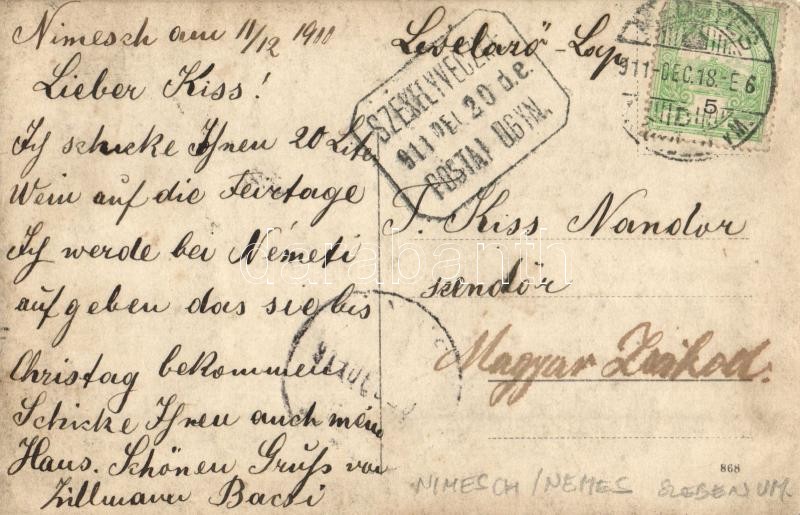 Nimesch am 11/12 1911
Lieber Kiss!
Ich schicke Ihnen 20 Lite
Wein auf die Feirtage
Ich werde bei Németi
aufgeben das sie bis
Christag bekommen
Schicke Ihnen auch mein
Haus. Schönen Gruss von
Zillmann Bacsi
Levelező-Lap
SZÉKELYVÉCZKE
911 DEC 20 d.e.
POSTAI ÜGYN.
911-DEC.18.-E6
5
T. Kiss Nandor
csendör
Magyar
868
NIMESCH/NEMES SZEBEN UM.
darabanth